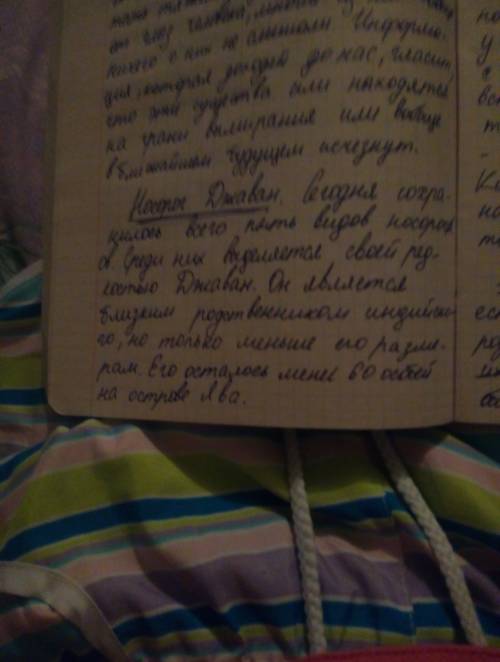 от глаз человека, многие из
ничего о них не слышали. Информа-
ция, которая доходит до нас, гласит,
что эти существа или находятся
на грани вымирания или вообще
в ближайшем будущем исчезнут.
Носорог Джаван. Сегодня сохра-
нилось всего пять видов носорог
ов. Среди них выделяется своей ред-
костью Джаван. Он является
близким родственником индийско-
го, но только меньше его разме-
рам. Его осталось менее 60 особей
на острове Ява.